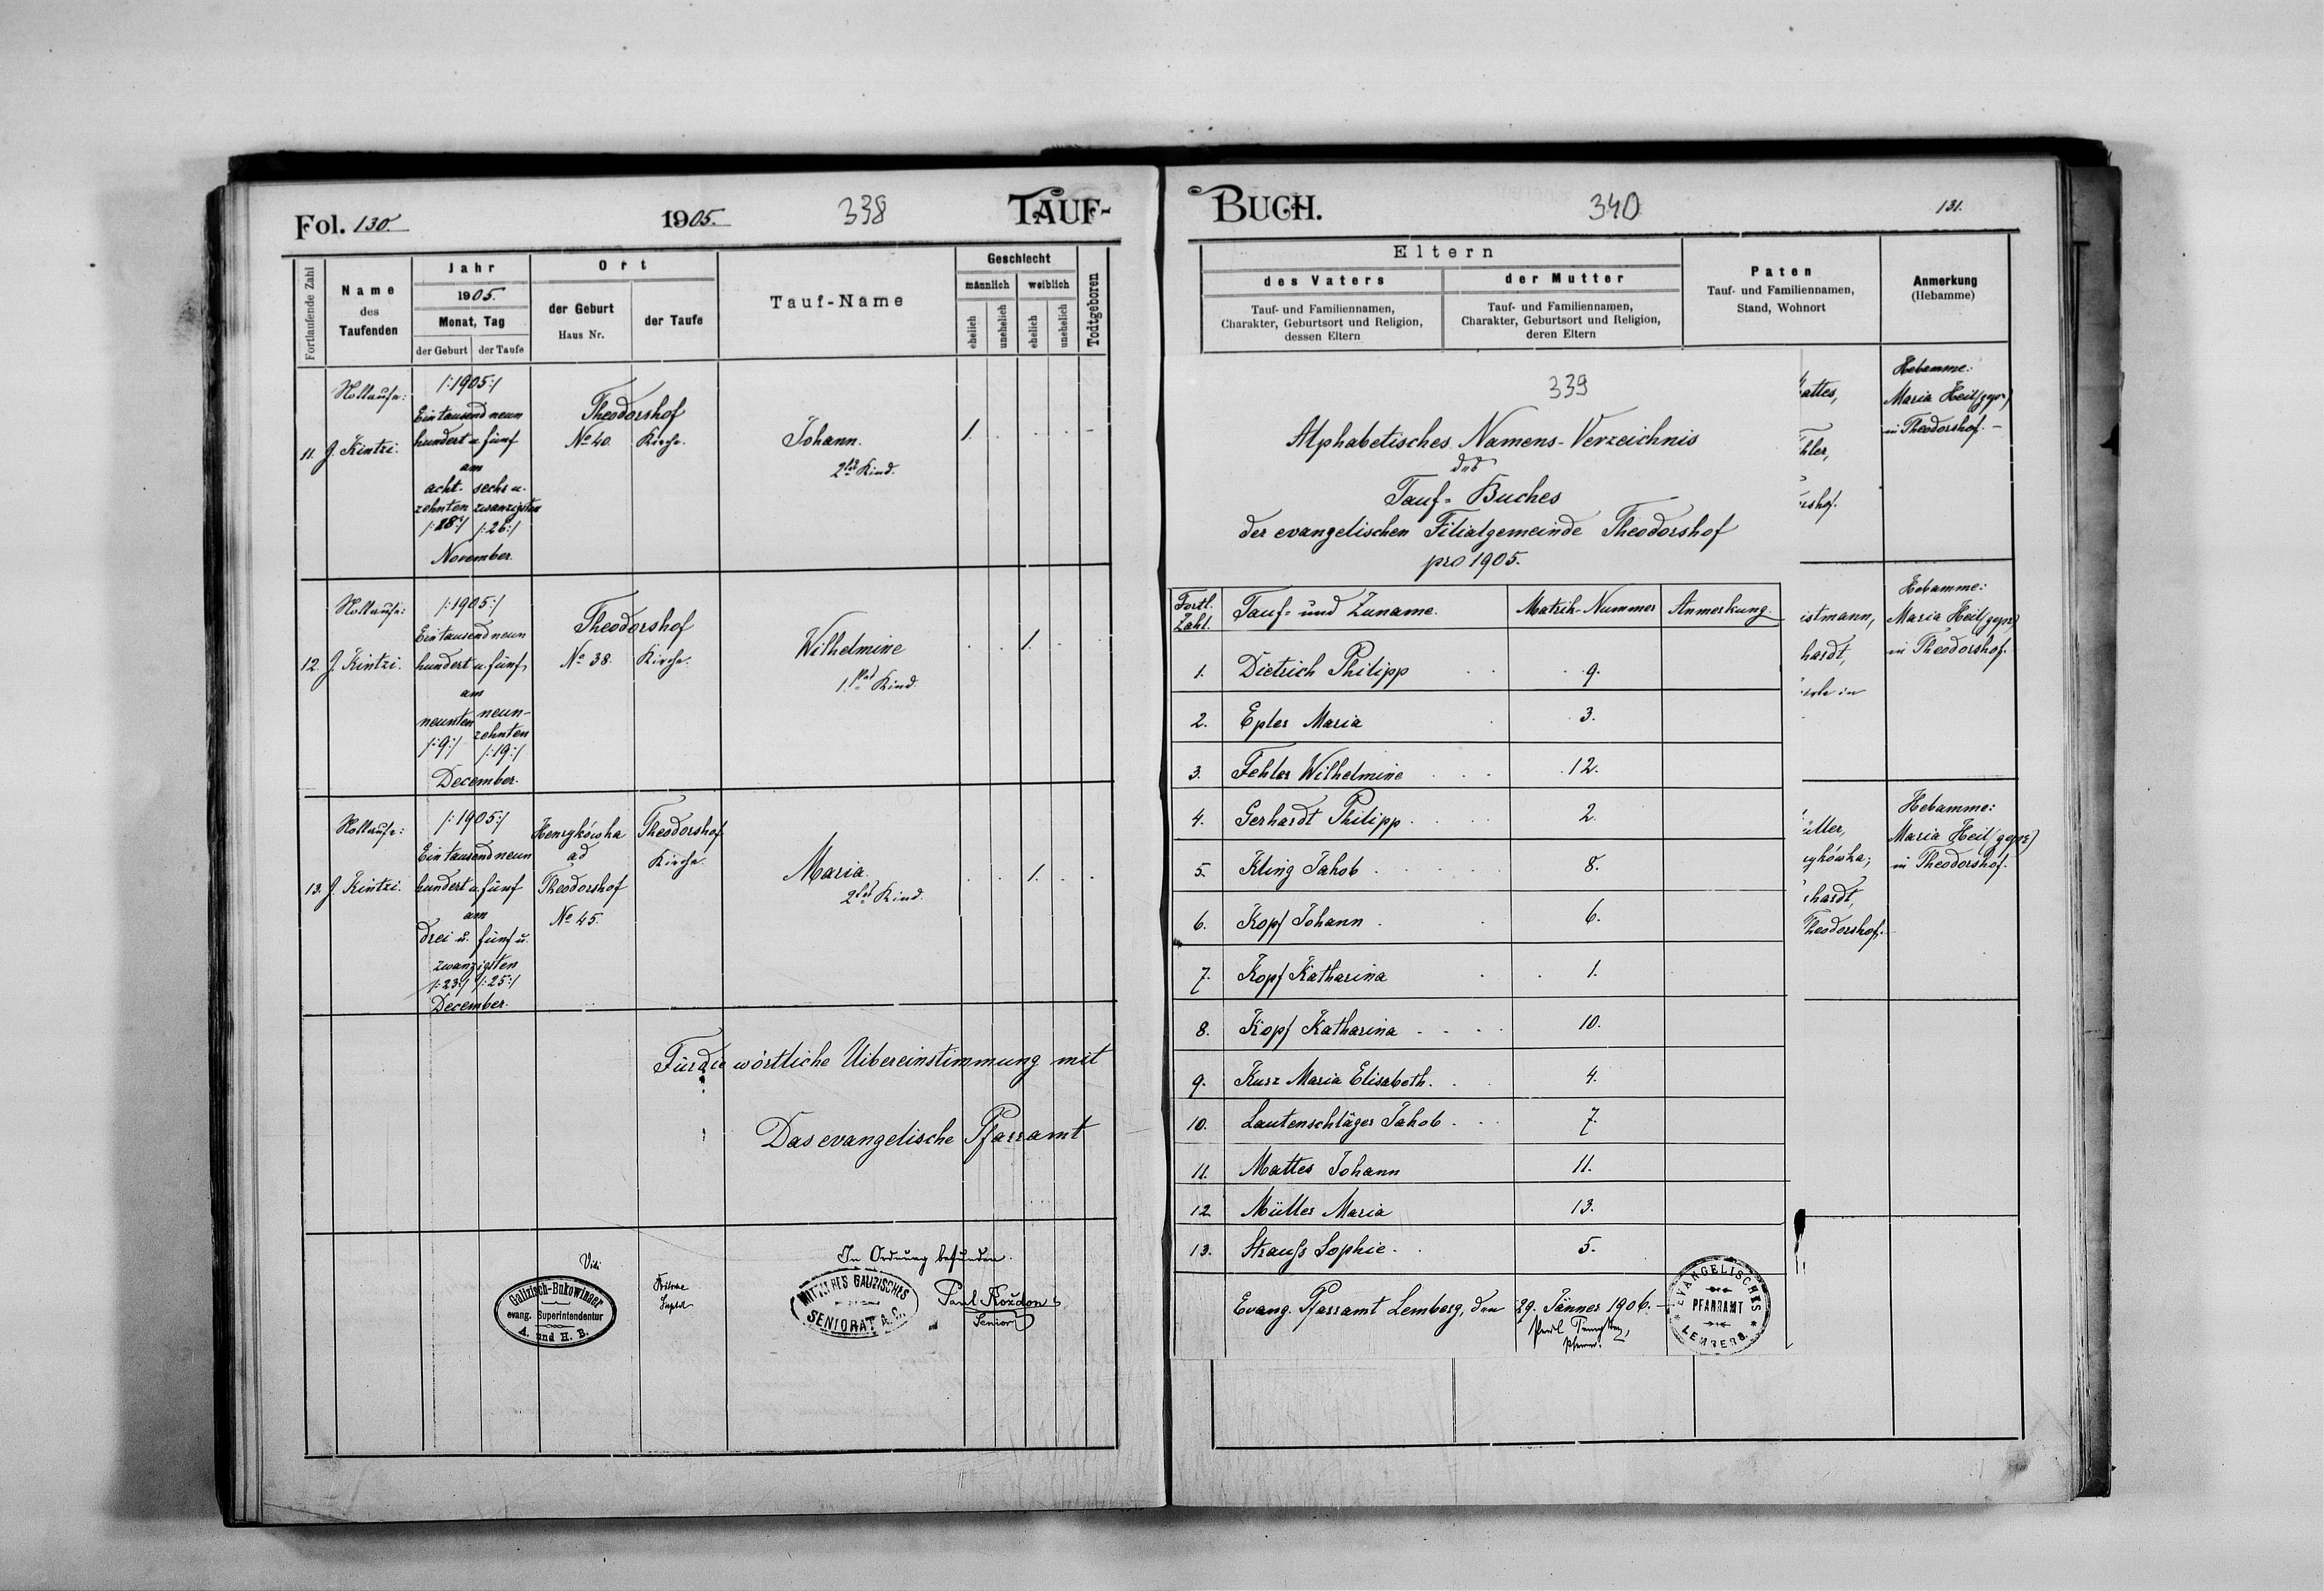 Fol. 130. 1905. 338 TAUF-
Fortlaufende Zahl
Name des Taufenden
Jahr
1905.
Monat, Tag
der Geburt der Taufe
Ort
der Geburt Haus Nr.
der Taufe
Tauf-Name
Geschlecht
männlich weiblich
ehelich unehelich ehelich unehelich
Todtgeboren
11. J. Kintzi.
/:1905:/
Ein tausend neun
hundert u. fünf
am
acht- sechs u.
zehnten zwanzigsten
/:18:/ /:26:/
November.
Theodorshof
No 40. Kirche.
Johann.
2tes Kind.
1.
12. J. Kintzi.
/:1905:/
Ein tausend neun
hundert u. fünf,
am
neunten neun-
zehnten
/:9:/ /:19:/
December.
Theodorshof
No 38. Kirche.
Wilhelmine
1. Kind.
1.
13. J. Kintzi.
/:1905:/
Ein tausend neun
hundert u. fünf
am
drei u. fünf u.
zwanzigsten
/:23:/ /:25:/
December.
Henrykówka
ad
Theodorshof
No 45.
Theodorshof
Kirche.
Maria.
2tes Kind.
1.
Für die wörtliche Uibereinstimmung mit
Das evangelische Pfarramt
Vidi
Galizisch-Bukowinaer
evang. Superintendentur
A. und H. B.
In Ordnung befunden.
MITTLERES GALIZISCHES
SENIORAT A. C.
Paul Rozdon
Senior
BUCH. 340 131.
Eltern
des Vaters
Tauf- und Familiennamen,
Charakter, Geburtsort und Religion,
dessen Eltern
der Mutter
Tauf- und Familiennamen,
Charakter, Geburtsort und Religion,
deren Eltern
Paten
Tauf- und Familiennamen,
Stand, Wohnort
Anmerkung
(Hebamme)
339
Alphabetisches Namens-Verzeichnis
des
Tauf-Buches
der evangelischen Filialgemeinde Theodorshof
pro 1905.
Fortl. Zahl. Tauf- und Zuname. Matrik-Nummer Anmerkung.
1. Dietrich Philipp 9.
2. Epler Maria 3.
3. Fehler Wilhelmine 12.
4. Gerhardt Philipp 2.
5. Kling Jakob 8.
6. Kopf Johann 6.
7. Kopf Katharina 1.
8. Kopf Katharina 10.
9. Kurz Maria Elisabeth. 4.
10. Lautenschläger Jakob 7.
11. Mattes Johann 11.
12 Müller Maria 13.
13. Strauß Sophie 5.
Evang. Pfarramt Lemberg, den 29. Jänner 1906.
EVANGELISCHES
PFARRAMT
LEMBERG.
attes,
hler,
rshof.
Hebamme:
Maria Heil (gepr)
in Theodorshof.
istmann,
hardt,
Hebamme:
Maria Heil (gepr)
in Theodorshof.
üller,
ykówka;
hardt,
Theodorshof.
Hebamme:
Maria Heil (gepr)
in Theodorshof.